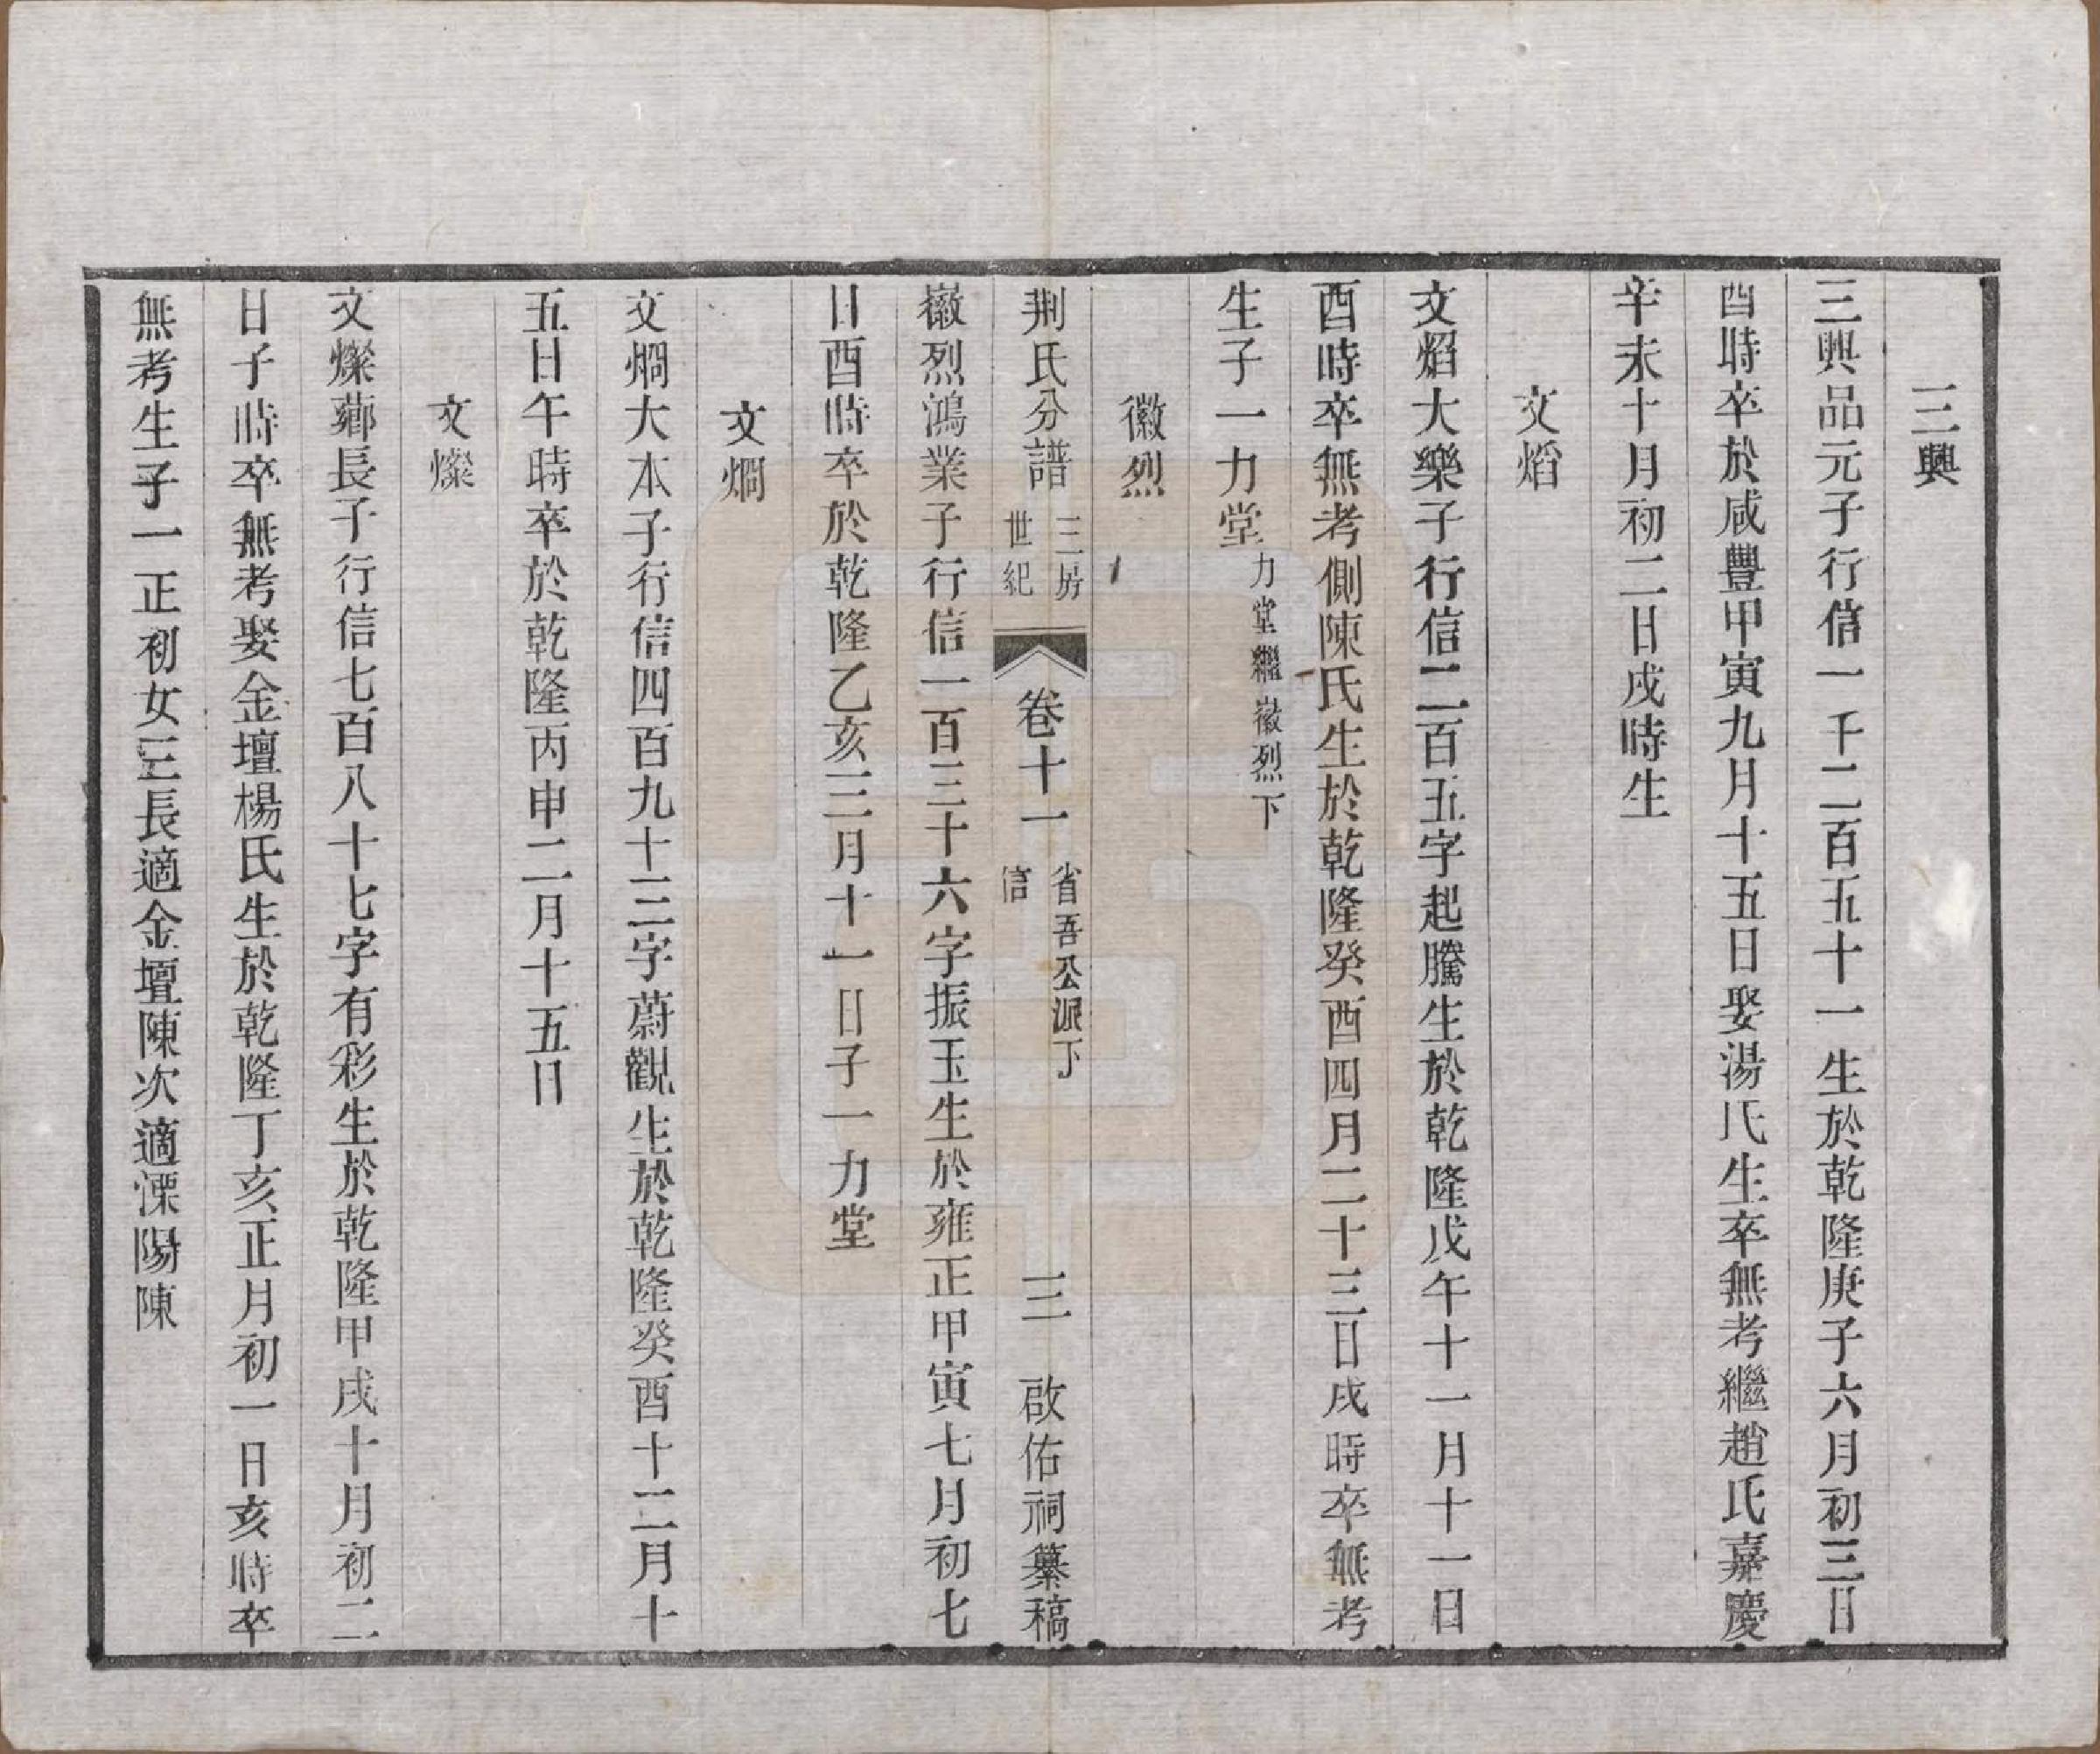 三興
三興品元子行信一千二百五十一生於乾隆庚子六月初三日
酉時卒於咸豐甲寅九月十五日娶湯氏生卒無考繼趙氏嘉慶
辛未十月初二日戌時生
文熖
文熖大樂子行信二百五字起騰生於乾隆戊午十一月十一日
酉時卒無考側陳氏生於乾隆癸酉四月二十三日戌時卒無考
生子一力堂 力堂繼徽烈下
徽烈
荆氏分譜 三房世紀 卷十一 省吾公派下信 三 啟佑祠纂稿
徽烈鴻業子行信一百三十六字振玉生於雍正甲寅七月初七
日酉時卒於乾隆乙亥三月十一日子一力堂
文燗
文燗大本子行信四百九十三字蔚觀生於乾隆癸酉十二月十
五日午時卒於乾隆丙申二月十五日
文燦
文燦薌長子行信七百八十七字有彩生於乾隆甲戌十月初二
日子時卒無考娶金壇楊氏生於乾隆丁亥正月初一日亥時卒
無考生子一正初女三長適金壇陳次適溧陽陳